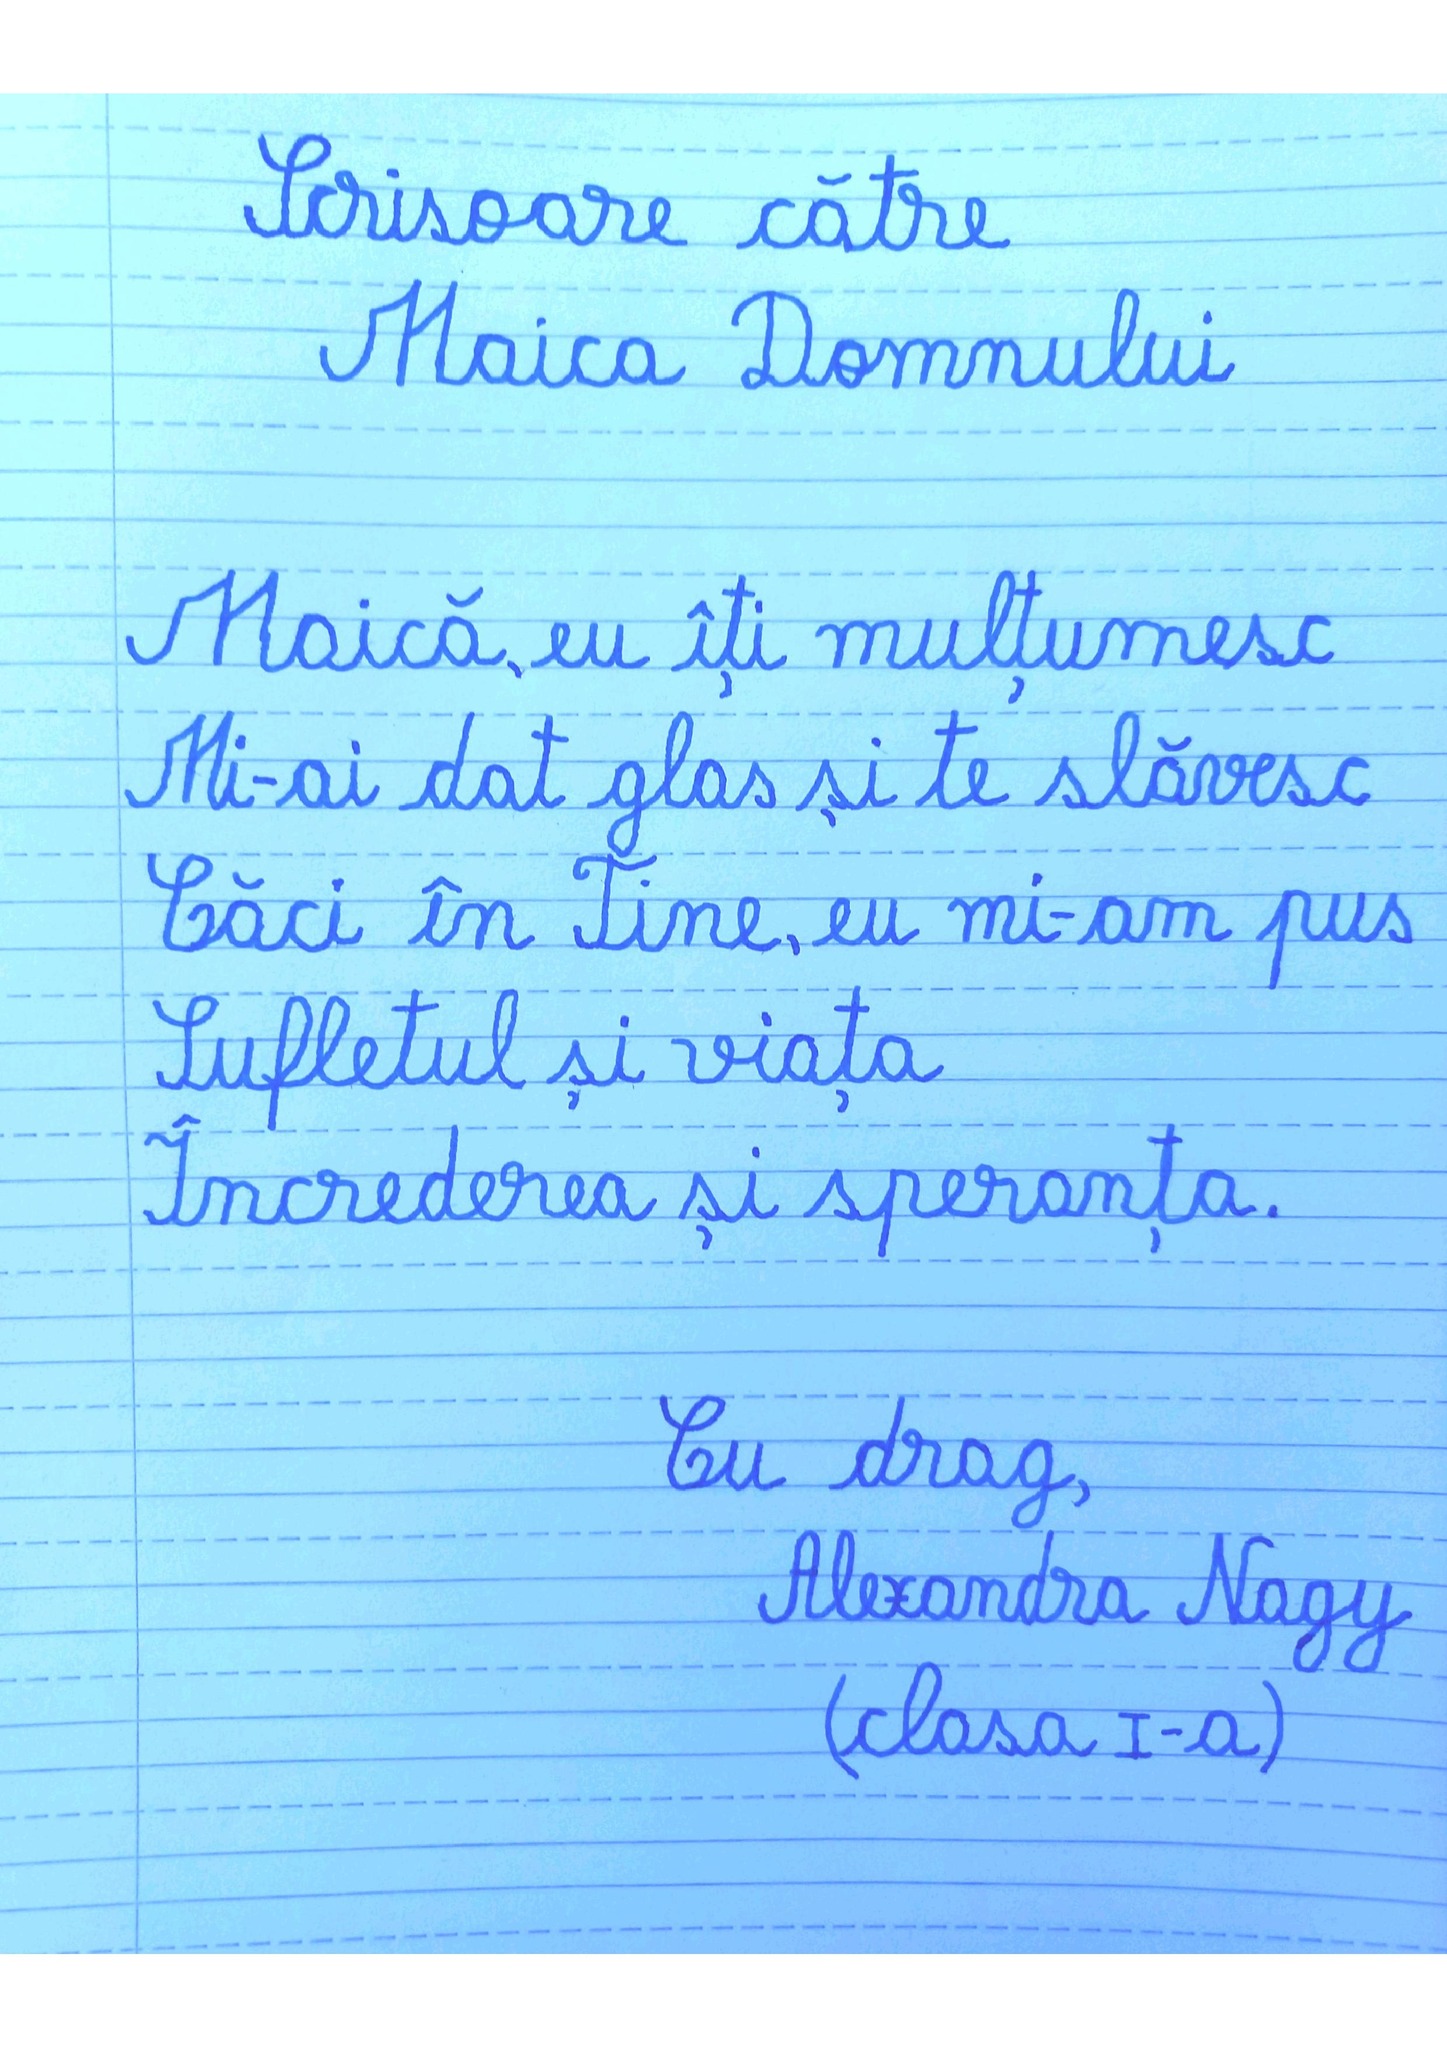 Scrisoare către
Maica Domnului
Maică, eu îți mulțumesc
Mi-ai dat glas și te slăvesc
Căci în Tine, eu mi-am pus
Sufletul și viața
Încrederea și speranța.
Cu drag,
Alexandra Nagy
(clasa I-a)